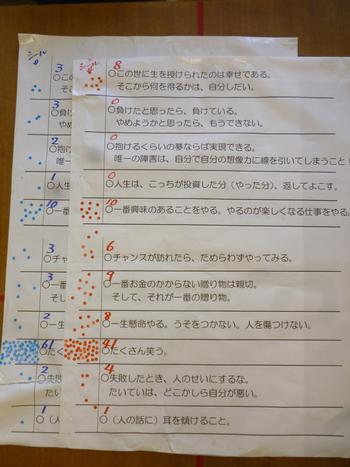 シール
3
○この
そこ
3
○負け
やめ
2
○抱け
唯一
1
○人生
10
○一番
3
○チャ
3
○一番
そし
2
○一生
61
○たく
2
○失敗
たい
1
○（人
シール
8
○この世に生を授けられたのは幸せである。
そこから何を得るかは、自分しだい。
0
○負けたと思ったら、負けている。
やめようかと思ったら、もうできない。
0
○抱けるくらいの夢ならば実現できる。
唯一の障害は、自分で自分の想像力に線を引いてしまうこと！
0
○人生は、こっちが投資した分（やった分）、返してよこす。
10
○一番興味のあることをやる。やるのが楽しくなる仕事をやる
6
○チャンスが訪れたら、ためらわずやってみる。
9
○一番お金のかからない贈り物は親切。
そして、それが一番の贈り物。
8
○一生懸命やる。うそをつかない。人を傷つけない。
41
○たくさん笑う。
4
○失敗したとき、人のせいにするな。
たいていは、どこかしら自分が悪い。
1
○（人の話に）耳を傾けること。